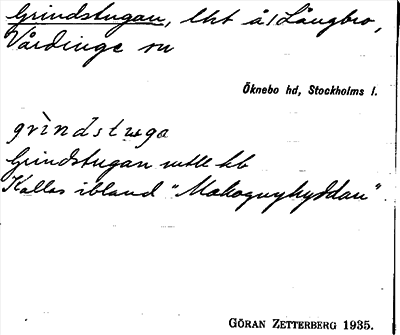 Grindstugan, lht å/Långbro,
Vårdinge sn
Öknebo hd, Stockholms l.
grìndstu̶ga
Grindstugan uttl kb
Kallas ibland "Makognyhyddan".
GÖRAN ZETTERBERG 1935.